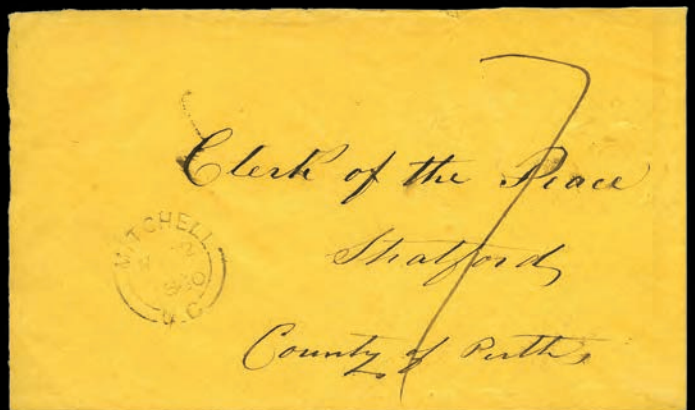 7
Clerk of the Peace
Stratford
County of Perth
MITCHELL
U.C